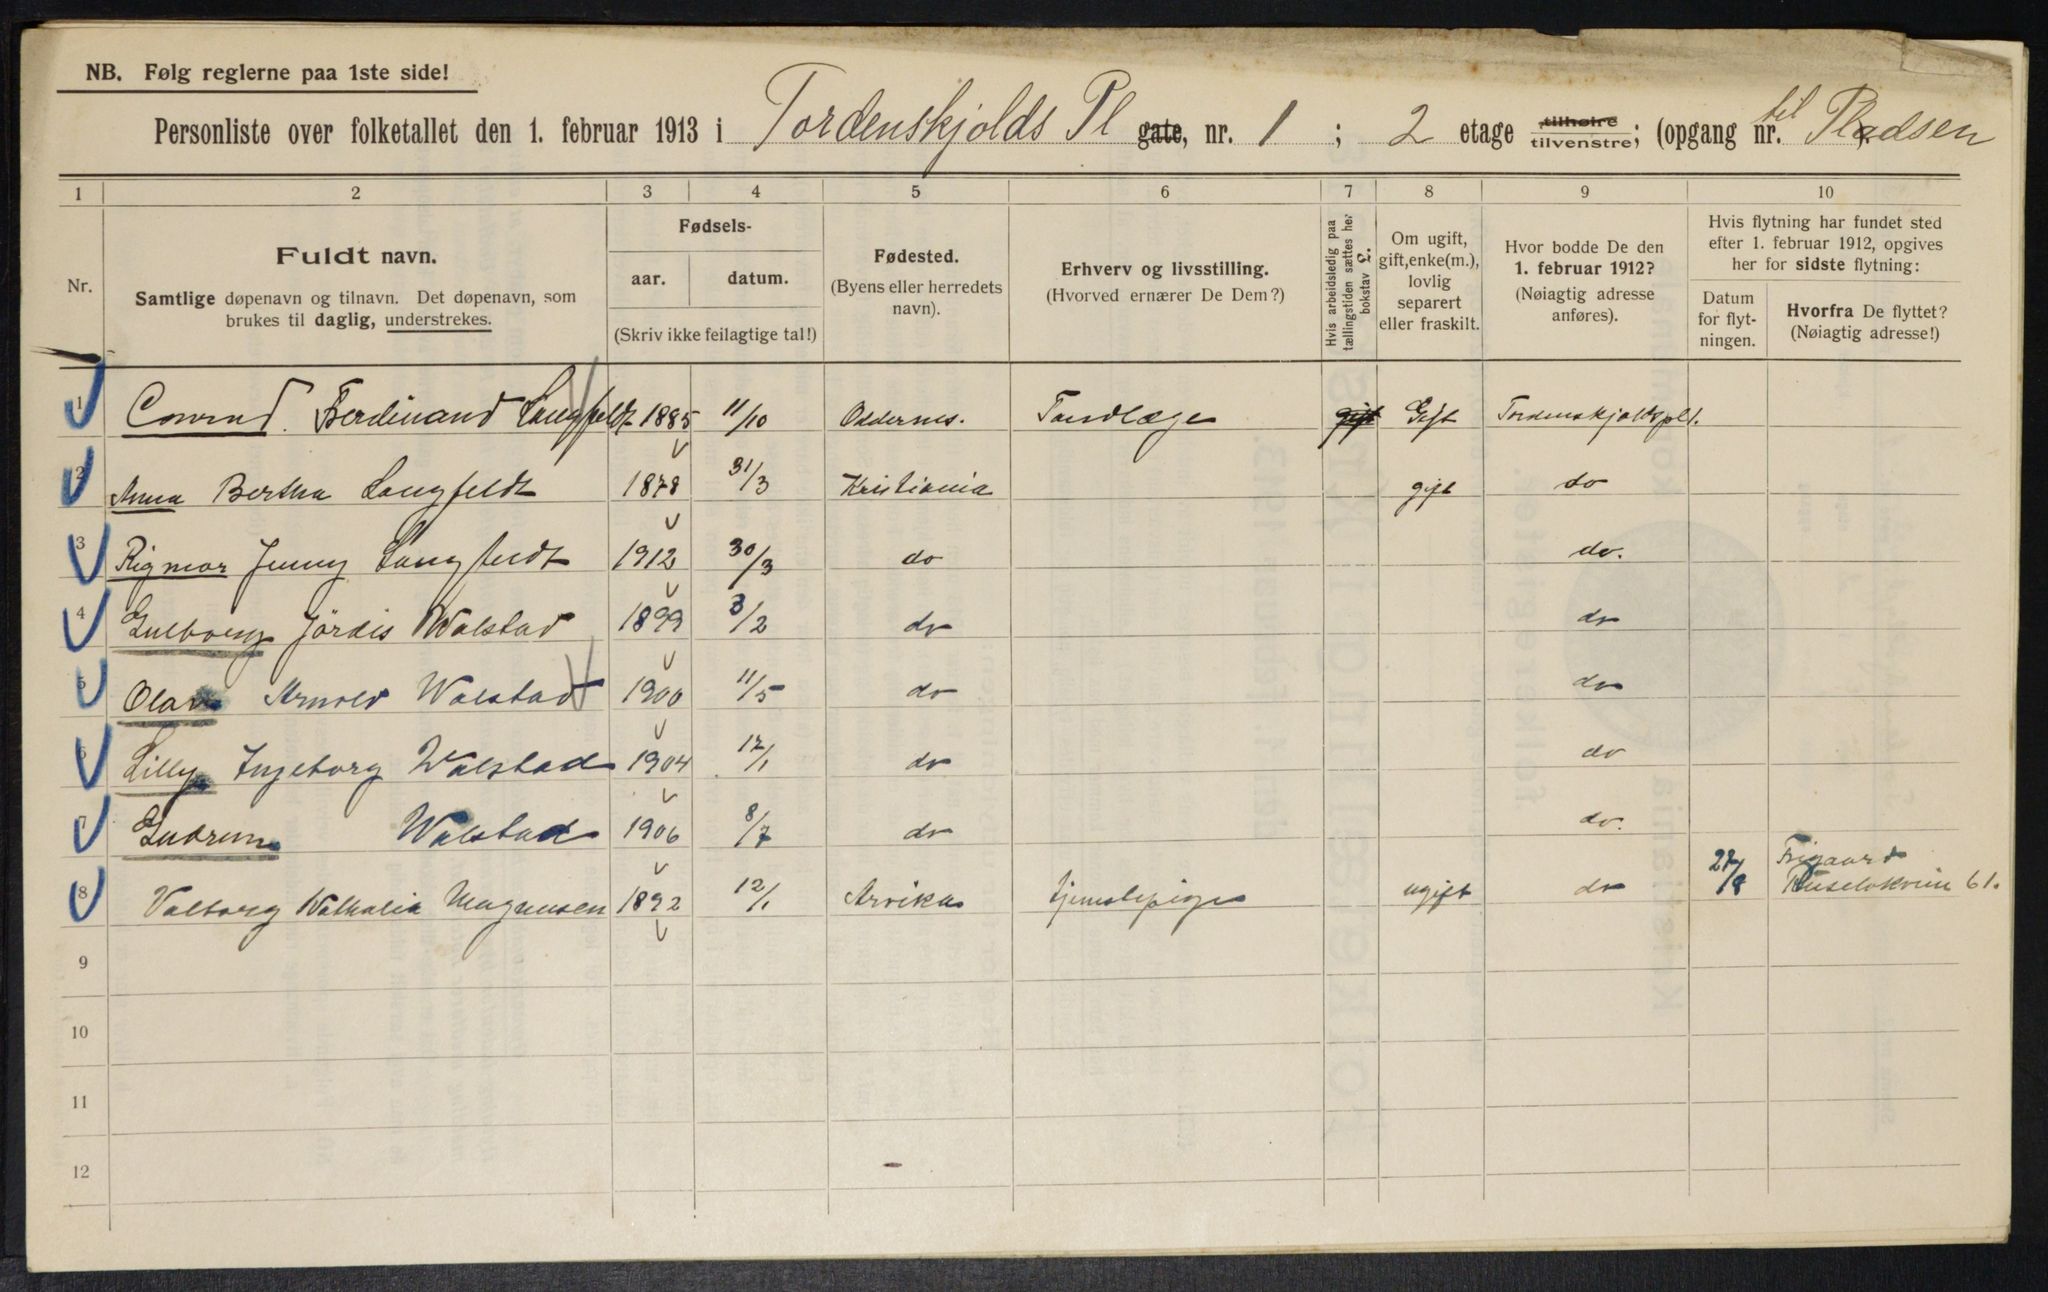 NB. Følg reglerne paa 1ste side!
Personliste over folketallet den 1. februar 1913 i Tordenskjolds Pl gate, nr. 1 ; 2 etage tilhøire tilvenstre; (opgang nr. til Pladsen
1 2 3 4 5 6 7 8 9 10
Nr.
Fuldt navn.
Samtlige døpenavn og tilnavn. Det døpenavn, som
brukes til daglig, understrekes.
Fødsels-
aar. datum.
(Skriv ikke feilagtige tal!)
Fødested.
(Byens eller herredets
navn).
Erhverv og livsstilling.
(Hvorved ernærer De Dem?)
Hvis arbeidsledig paa
tællingstiden sættes her
bokstav L.
Om ugift,
gift, enke(m.),
lovlig
separert
eller fraskilt.
Hvor bodde De den
1. februar 1912?
(Nøiagtig adresse
anføres).
Hvis flytning har fundet sted
efter 1. februar 1912, opgives
her for sidste flytning:
Datum
for flyt-
ningen.
Hvorfra De flyttet?
(Nøiagtig adresse!)
1 Conrad Ferdinand Langfeldt 1885 11/10 Oddernes. Tandlæge gift Gift Tordenskjoldspl 1.
2 Anna Bertha Langfeldt 1878 31/3 Kristiania gift do
3 Rigmor Jenny Langfeldt 1912 30/3 do do.
4 Gulborg Jördis Walstad 1899 3/2 do do
5 Olav Arnold Walstad 1900 11/5 do do
6 Lilly Ingeborg Walstad 1904 12/1 do do
7 Gudrun Walstad 1906 8/7 do do.
8 Valborg Wathalia Magnusen 1892 12/1 Arvika tjenestepige ugift do 27/8 61.
9
10
11
12